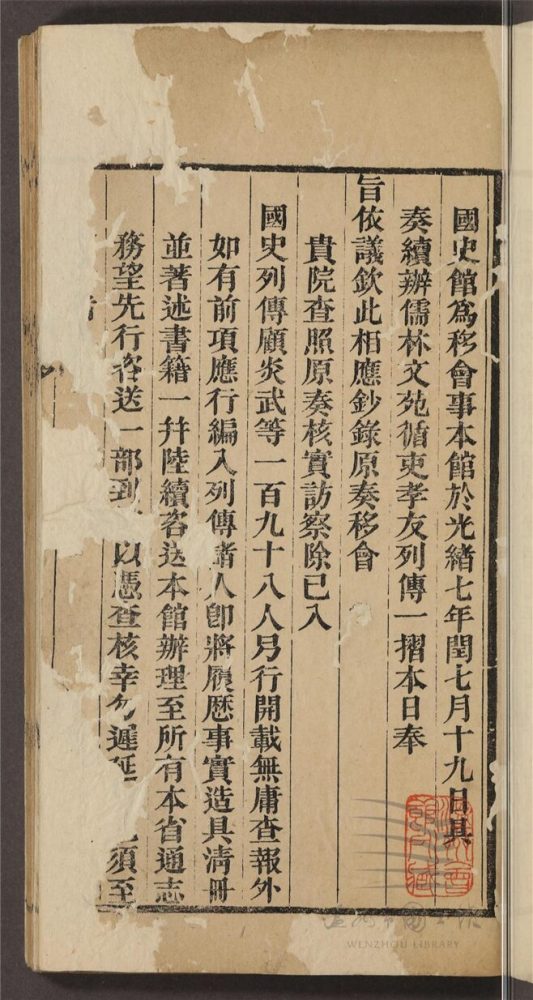 國史館為移會事本館於光緒七年閏七月十九日具
奏續辦儒林文苑循吏孝友列傳一摺本日奉
旨依議欽此相應鈔錄原奏移會
貴院查照原奏核實訪察除已入
國史列傳顧炎武等一百九十八人另行開載無庸查報外
如有前項應行編入列傳諸人卽將履歷事實造具清冊
並著述書籍一幷陸續咨送本館辦理至所有本省通志
務望先行咨送一部到以憑查核幸勿遲延須至
者
WENZHOU LIBRARY